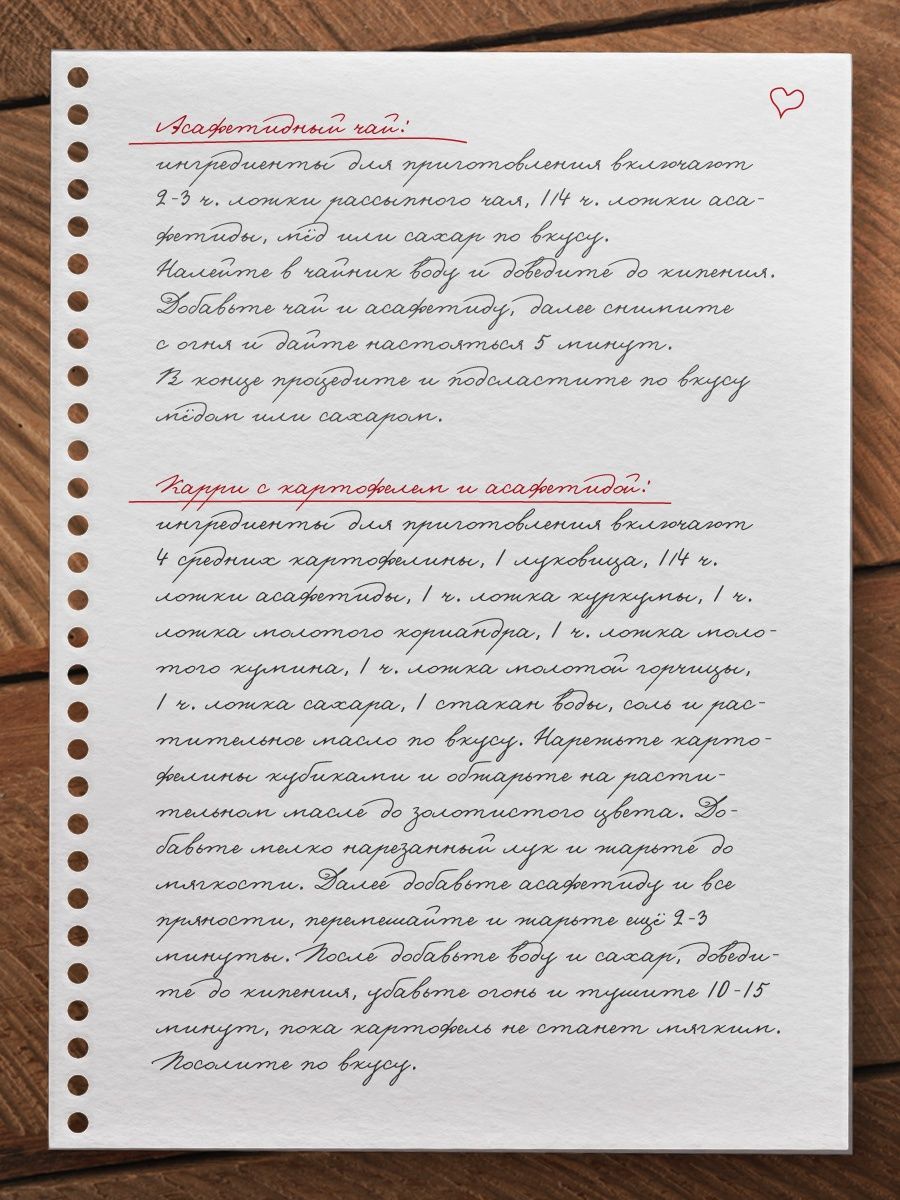 Асафетидный чай:
ингредиенты для приготовления включают
2-3 ч. ложки рассыпного чая, 1/4 ч. ложки аса-
фетиды, мёд или сахар по вкусу.
Налейте в чайник воду и доведите до кипения.
Добавьте чай и асафетиду, далее снимите
с огня и дайте настояться 5 минут.
В конце процедите и подсластите по вкусу
мёдом или сахаром.
Карри с картофелем и асафетидой:
ингредиенты для приготовления включают
4 средних картофелины, 1 луковица, 1/4 ч.
ложки асафетиды, 1 ч. ложка куркумы, 1 ч.
ложка молотого кориандра, 1 ч. ложка моло-
того кумина, 1 ч. ложка молотой горчицы,
1 ч. ложка сахара, 1 стакан воды, соль и рас-
тительное масло по вкусу. Нарежьте карто-
фелины кубиками и обжарьте на расти-
тельном масле до золотистого цвета. До-
бавьте мелко нарезанный лук и жарьте до
мягкости. Далее добавьте асафетиду и все
пряности, перемешайте и жарьте ещё 2-3
минуты. После добавьте воду и сахар, доведи-
те до кипения, убавьте огонь и тушите 10-15
минут, пока картофель не станет мягким.
Посолите по вкусу.